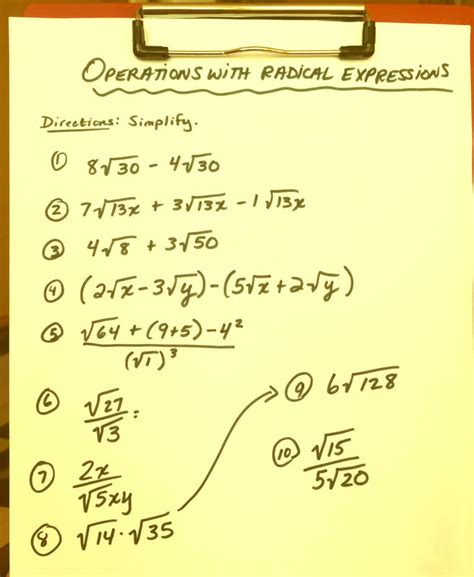 OPERATIONS WITH RADICAL EXPRESSIONS
Directions: Simplify.
① 8√30 - 4√30
② 7√13x + 3√13x - 1√13x
③ 4√8 + 3√50
④ (2√x - 3√y) - (5√x + 2√y)
⑤ √64 + (9+5) - 4²
(√1)³
⑥ √27 :
√3
⑦ 2x
√5xy
⑧ √14 · √35
⑨ 6√128
⑩ √15
5√20